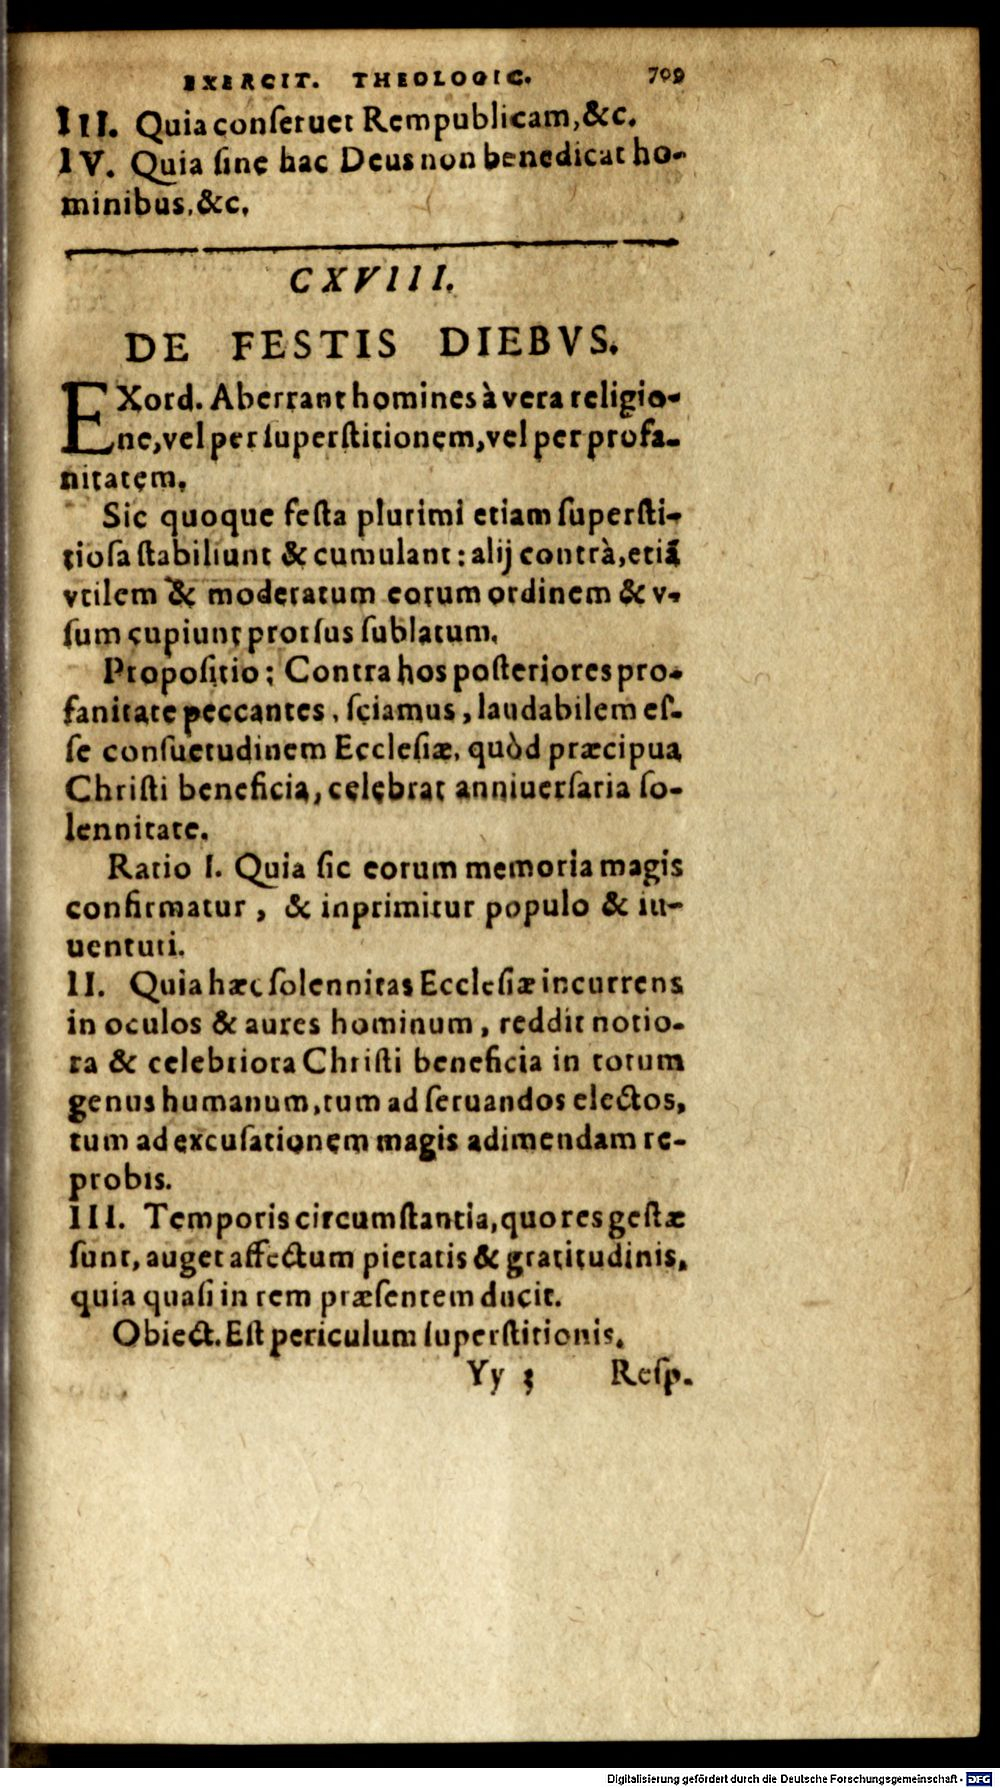 EXERCIT. THEOLOGIC. 709
III. Quia conſeruet Rempublicam, &c.
IV. Quia ſine hac Deus non benedicat ho-
minibus, &c.
CXVIII.
DE FESTIS DIEBVS.
EXord. Aberrant homines à vera religio-
ne, vel per ſuperſtitionem, vel per profa-
nitatem.
Sic quoque feſta plurimi etiam ſuperſti-
tioſa ſtabiliunt & cumulant: alij contrà, etiã
vtilem & moderatum eorum ordinem & v-
ſum cupiunt prorſus ſublatum.
Propoſitio: Contra hos poſteriores pro-
fanitate peccantes, ſciamus, laudabilem eſ-
ſe conſuetudinem Eccleſiæ, quòd præcipua
Chriſti beneficia, celebrat anniuerſaria ſo-
lennitate.
Ratio I. Quia ſic eorum memoria magis
confirmatur, & inprimitur populo & iu-
uentuti.
II. Quia hæc ſolennitas Eccleſiæ incurrens
in oculos & aures hominum, reddit notio-
ra & celebriora Chriſti beneficia in totum
genus humanum, tum ad ſeruandos electos,
tum ad excuſationem magis adimendam re-
probis.
III. Temporis circumſtantia, quo res geſtæ
ſunt, auget affectum pietatis & gratitudinis,
quia quaſi in rem præſentem ducit.
Obiect. Eſt periculum ſuperſtitionis.
Yy 3 Reſp.
Digitalisierung gefördert durch die Deutsche Forschungsgemeinschaft - DFG